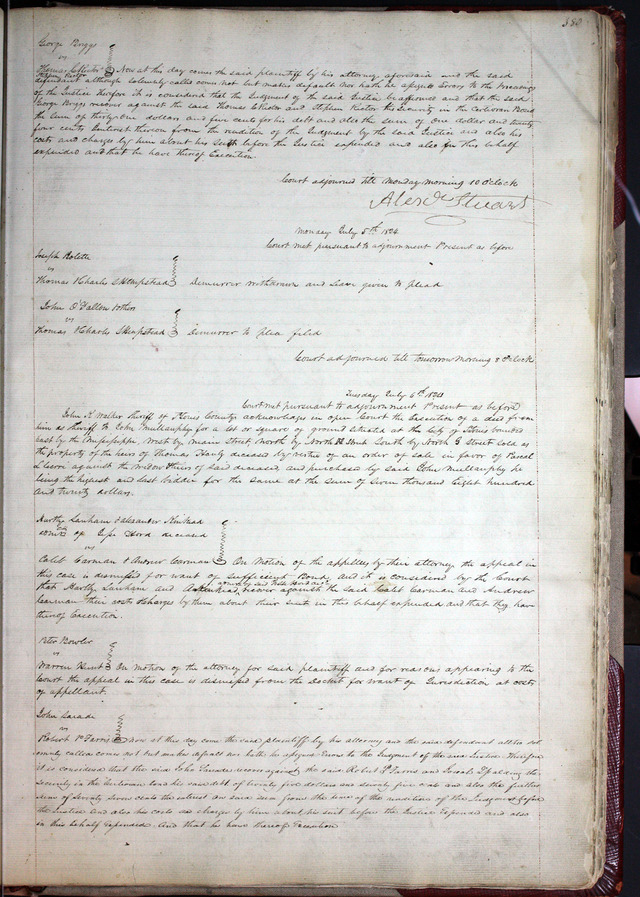 380
George Briggs
vs
Thomas C Rector &
Stephen Rector
Now at this day comes the said plaintiff by his attorney aforesaid and the said
defendant although solemnly called comes not but makes default nor hath he assigned Errors to the proceedings
of the Justice therefore it is considered that the Judgment of the said Justice be affirmed and that the said
George Briggs recover against the said Thomas C Rector and Stephen Rector the Security in the Certiorari Bond
the sum of thirty one dollars and five cents for his debt and also the sum of one dollar and twenty
four cents Interest thereon from the rendition of the Judgment by the said Justice and also his
costs and charges by him about his Suit before the Justice expended and also in this behalf
expended and that he have thereof Execution.
Court adjourned till Monday morning 10 OClock
Alexr Stuart
Monday July 5th 1824
Court met pursuant to adjournment Present as before
Joseph Rolette
vs
Thomas & Charles S Hempstead
Demurrer withdrawn and leave given to plead
John O'Fallon & others
vs
Thomas & Charles S Hempstead
Demurrer to plea filed
Court adjourned till tomorrow morning 8 OClock
Tuesday July 6th 1824
Court met pursuant to adjournment Present as before
John K Walker Sheriff of St Louis County acknowledges in open Court the Execution of a deed from
him as Sheriff to John Mullanphy for a lot or square of ground situated at the City of St Louis bounded
East by the Mississippi West by main Street North by North H Street South by North G Street sold as
the property of the heirs of Thomas Hanly deceased by virtue of an order of sale in favor of Pascal
L Cerré against the widow & heirs of said deceased and purchased by said John Mullanphy he
being the highest and last bidder for the same at the sum of seven thousand Eight hundred
and twenty dollars.
Hartly Lanham & Alexander Kinkead
admrs of Gipe Hord deceased
vs
Caleb Carman & Andrew Carman
On Motion of the appellees by their attorney the appeal in
this case is dismissed for want of sufficient Bond and it is considered by the Court
that Hartly Lanham and A Kinkead recover against the said Caleb Carman and Andrew
Carman their costs & charges by them about their suit in this behalf expended and that they have
thereof Execution.
Peter Bowler
vs
Warren Hunt
On motion of the attorney for said plaintiff and for reasons appearing to the
Court the appeal in this case is dismissed from the Docket for want of Jurisdiction at costs
of appellant.
John Savade
vs
Robert P Farris
Now at this day came the said plaintiff by his attorney and the said defendant altho sol
emnly called comes not but makes default nor hath he assigned Errors to the Judgment of the said Justice Therefore
it is considered that the said John Savade recover against the said Robert P Farris and Josiah Spalding the
Security in the Certiorari bond the said debt of twenty five dollars and seventy five cents and also the further
sum of Seventy seven cents the interest on said sum from the time of the rendition of the Judgment before
the Justice and also his costs and charges by him about his suit before the Justice Expended and also
in this behalf Expended. And that he have thereof Execution